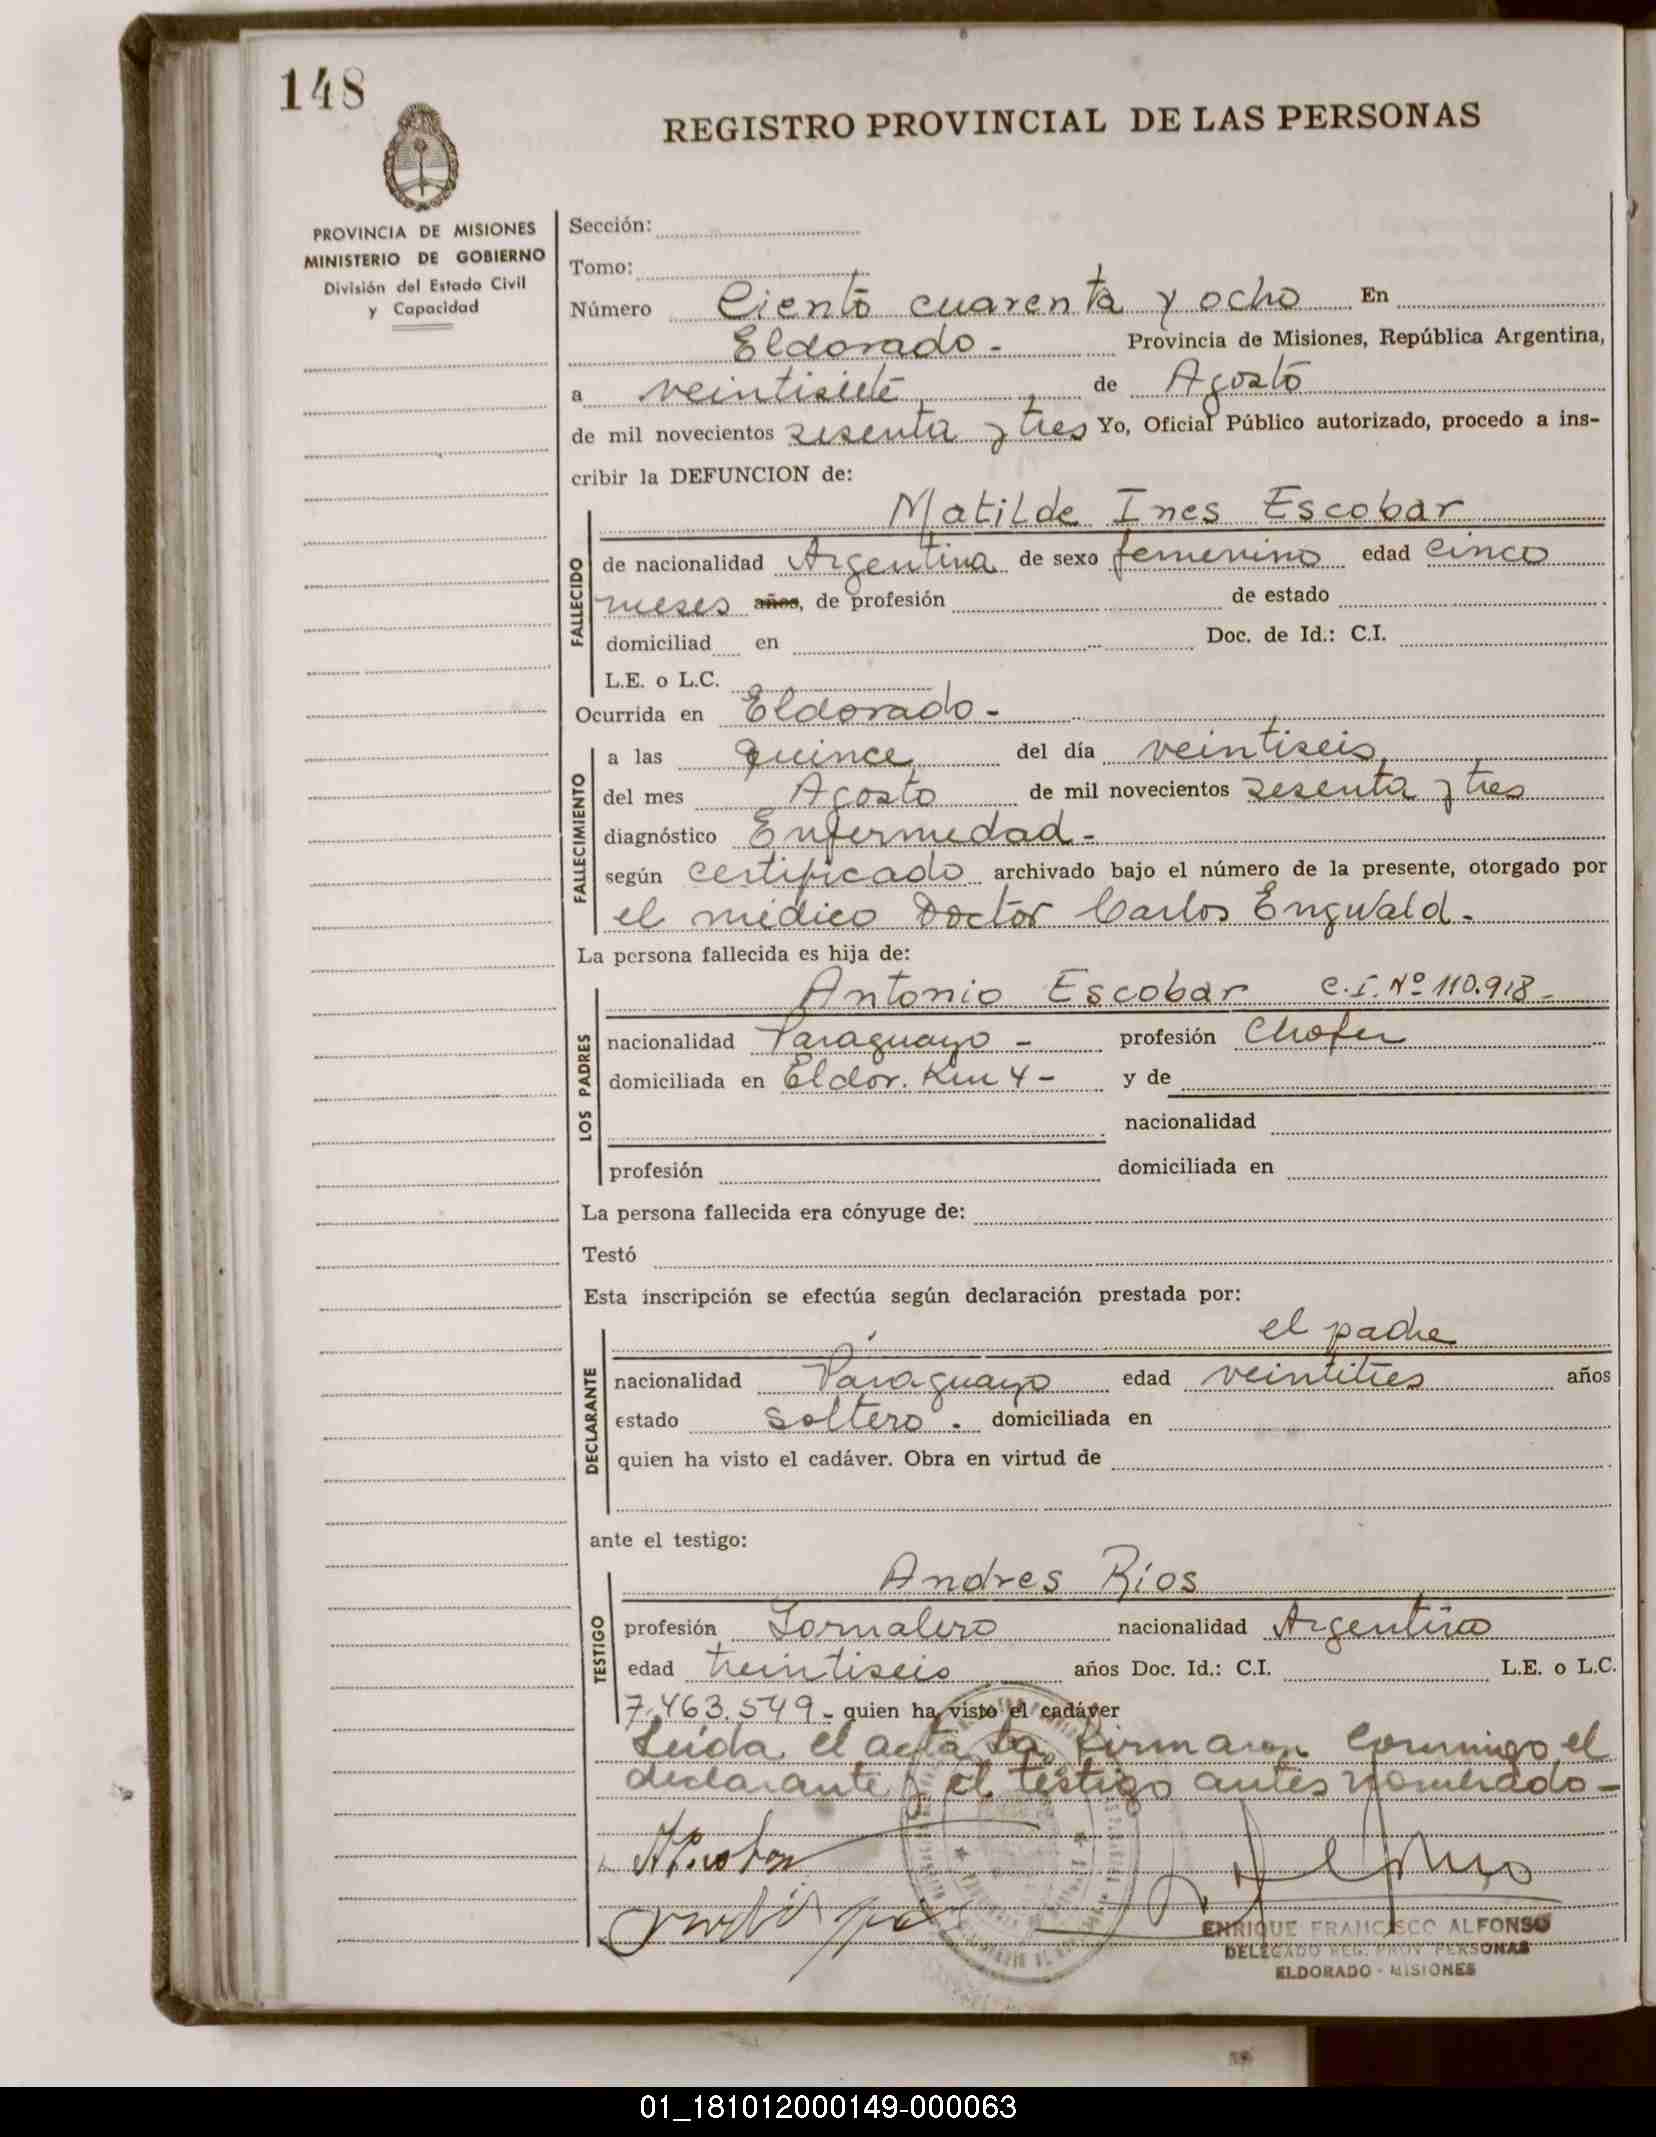 148
REGISTRO PROVINCIAL DE LAS PERSONAS
PROVINCIA DE MISIONES
MINISTERIO DE GOBIERNO
División del Estado Civil
y Capacidad
Sección:
Tomo:
Número Ciento cuarenta y ocho En
Eldorado - Provincia de Misiones, República Argentina,
a veintisiete de Agosto
de mil novecientos sesenta y tres Yo, Oficial Público autorizado, procedo a ins-
cribir la DEFUNCION de:
Matilde Ines Escobar
FALLECIDO
de nacionalidad Argentina de sexo femenino edad cinco
meses años, de profesión de estado
domiciliad en Doc. de Id.: C.I.
L.E. o L.C.
Ocurrida en Eldorado -
FALLECIMIENTO
a las quince del día veintiseis
del mes Agosto de mil novecientos sesenta y tres
diagnóstico Enfermedad -
según certificado archivado bajo el número de la presente, otorgado por
el médico Doctor Carlos Engwald -
La persona fallecida es hija de:
LOS PADRES
Antonio Escobar C.I. Nº 110.918 -
nacionalidad Paraguayo - profesión Chofer
domiciliada en Eldor. Km 4 - y de
nacionalidad
profesión domiciliada en
La persona fallecida era cónyuge de:
Testó
Esta inscripción se efectúa según declaración prestada por:
DECLARANTE
el padre
nacionalidad Paraguayo edad veintitres años
estado soltero . domiciliada en
quien ha visto el cadáver. Obra en virtud de
ante el testigo:
TESTIGO
Andres Ríos
profesión Jornalero nacionalidad Argentino
edad treintiseis años Doc. Id.: C.I. L.E. o L.C.
7.463.549 - quien ha visto el cadáver
Leída el acta la firmaron conmigo el
declarante y el testigo antes nombrado -
ENRIQUE FRANCISCO ALFONSO
DELEGADO REG. PROV. PERSONAS
ELDORADO - MISIONES
01_181012000149-000063